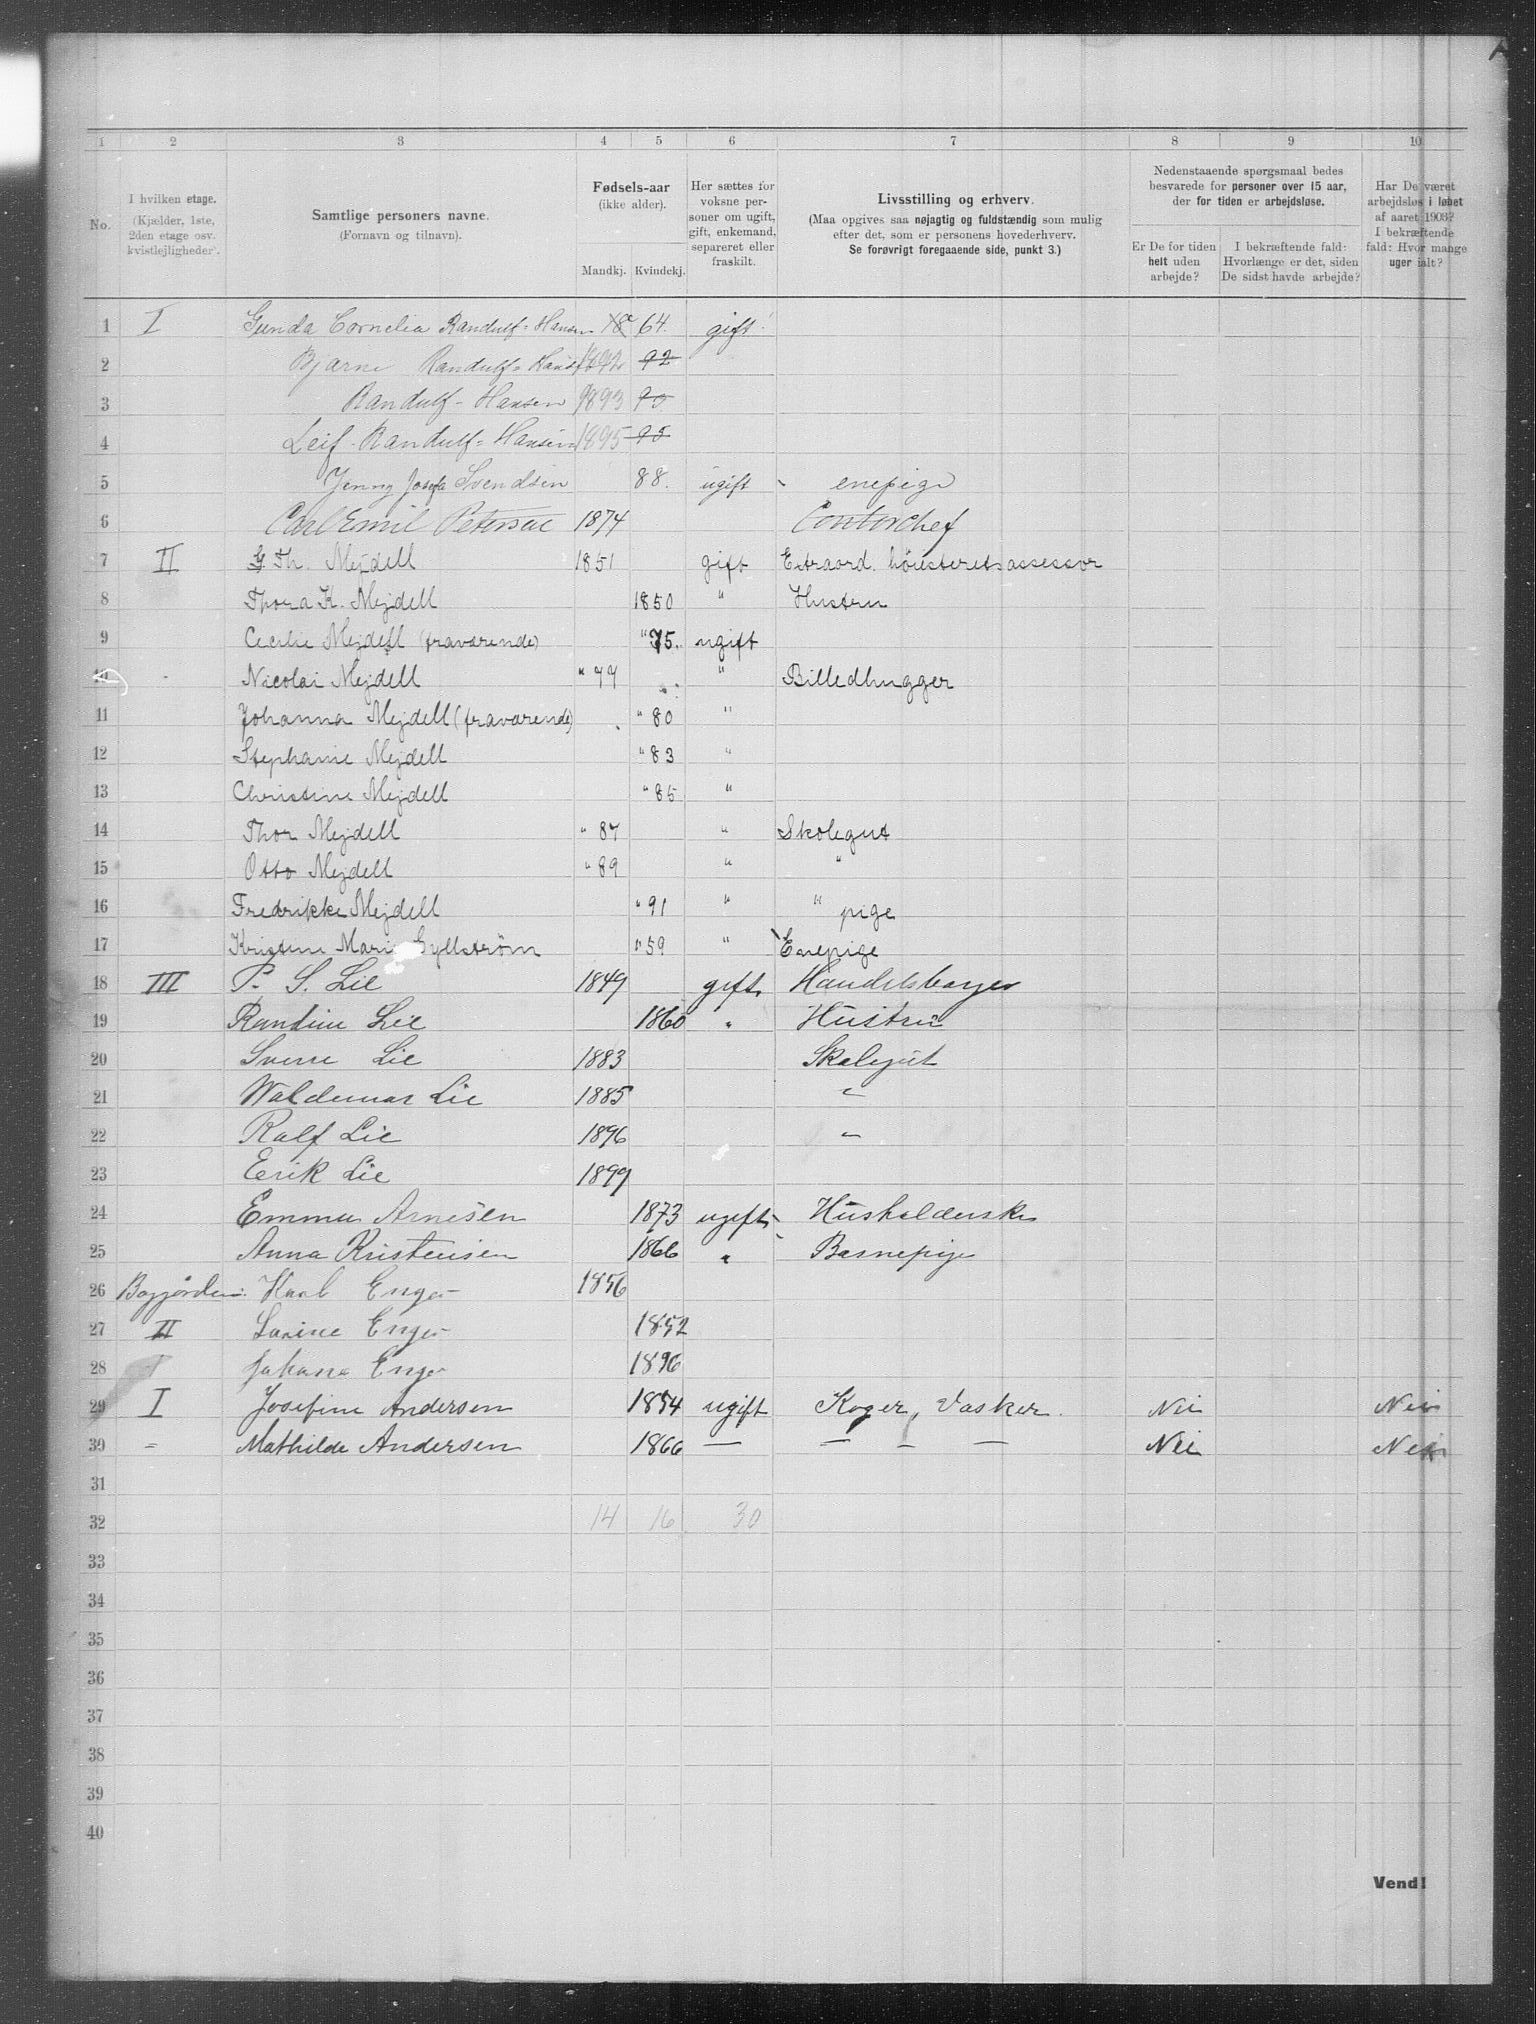 1 2 3 4 5 6 7 8 9 10
No.
I hvilken etage.
(Kjælder, 1ste,
2den etage osv.
kvistlejligheder).
Samtlige personers navne.
(Fornavn og tilnavn).
Fødsels-aar
(ikke alder).
Mandkj. Kvindekj.
Her sættes for
voksne per-
soner om ugift,
gift, enkemand,
separeret eller
fraskilt.
Livsstilling og erhverv.
(Maa opgives saa nøjagtig og fuldstændig som mulig
efter det, som er personens hovederhverv.
Se forøvrigt foregaaende side, punkt 3.)
Nedenstaaende spørgsmaal bedes
besvarede for personer over 15 aar,
der for tiden er arbejdsløse.
Er De for tiden
helt uden
arbejde?
I bekræftende fald:
Hvorlænge er det, siden
De sidst havde arbejde?
Har De været
arbejdsløs i løbet
af aaret 1903?
I bekræftende
fald: Hvor mange
uger ialt?
1 I Gunda Cornelia Randulf-Hansen 18 64. gift
2 Bjarne Randulf-Hansen 1892 92
3 Randulf-Hansen 1893
4 Leif Randulf-Hansen 1895 95
5 Jenny Josefa Svendsen 88. ugift enepige
6 Carl Emil Petersen 1874 Contorchef
7 II G. Th. Mejdell 1851 gift Extraord. høiesteretsassessor
8 Thora K. Mejdell 1850 " Hustru
9 Cecilie Mejdell (fraværende) " 75. ugift
10 Nicolai Mejdell " 77 " Billedhugger
11 Johanna Mejdell (fraværende) " 80 "
12 Stephanie Mejdell " 83 "
13 Christine Mejdell " 85 "
14 Thor Mejdell " 87 " Skolegut
15 Otto Mejdell " 89 " "
16 Fredrikke Mejdell " 91 " " pige
17 Kristine Marie Gyllstrøm " 59 " Enepige
18 III P. S. Lie 1849 gift Handelsborger
19 Randine Lie 1860 " Hustru
20 Sverre Lie 1883 Skolegut
21 Waldemar Lie 1885 "
22 Ralf Lie 1896 "
23 Eerik Lie 1899
24 Emma Arnesen 1873 ugift Husholderske
25 Anna Kristensen 1866 " Barnepige
26 Baggården: Karl Enger 1856
27 II Larine Enger 1852
28 Johana Enger 1896
29 I Josefine Andersen 1854 ugift Koger, Vasker. Nei Nei
30 = Mathilde Andersen 1866 — — — — Nei Nei
31
32 14 16 30
33
34
35
36
37
38
39
40
Vend!